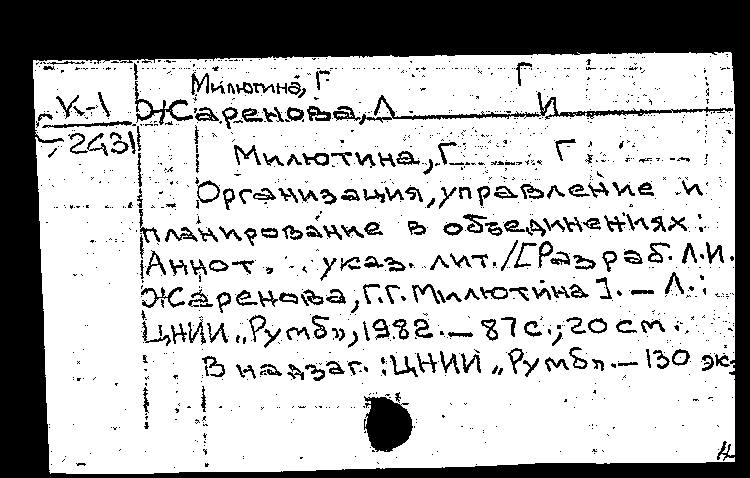 Милютина, Г Г
К-1 Жаренова, Л И
2431
Милютина, Г Г
Организация, управление и
планирование в объединениях:
Аннот. указ. лит./[Разраб. Л.И.
Жаренова, Г.Г. Милютина]. — Л.:
ЦНИИ „Румб”, 1982. — 87 с.; 20 см.
В надзаг.: ЦНИИ „Румб”. — 130 экз